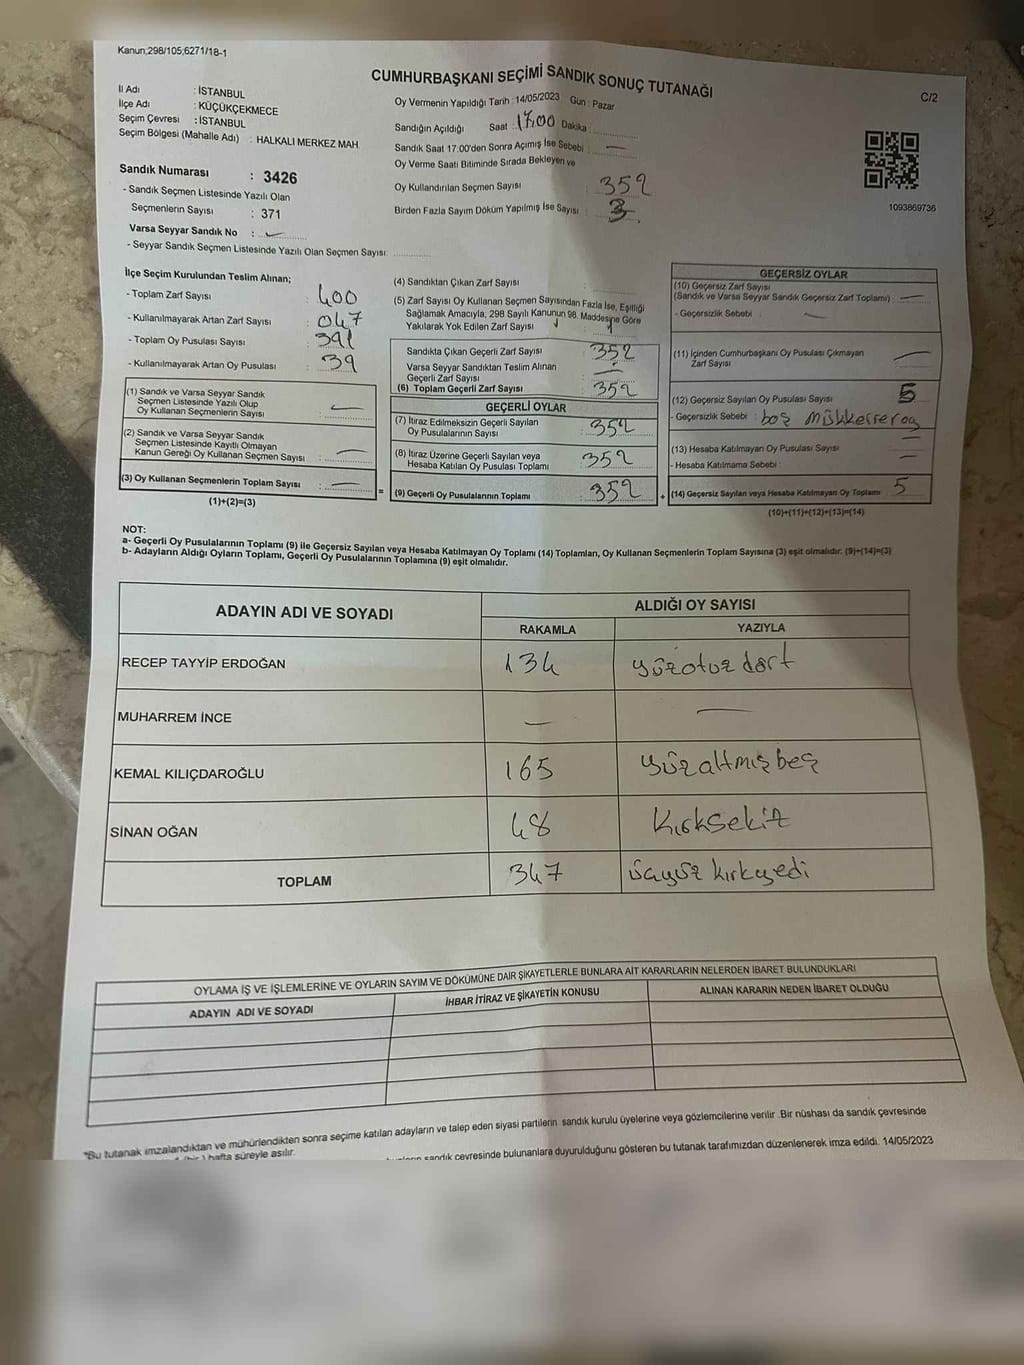 Kanun,298/105,6271/18-1
CUMHURBAŞKANI SEÇİMİ SANDIK SONUÇ TUTANAĞI
C/2
İl Adı : İSTANBUL
İlçe Adı : KÜÇÜKÇEKMECE
Seçim Çevresi : İSTANBUL
Seçim Bölgesi (Mahalle Adı) : HALKALI MERKEZ MAH.
Sandık Numarası : 3426
- Sandık Seçmen Listesinde Yazılı Olan
Seçmenlerin Sayısı : 371
Varsa Seyyar Sandık No : -
- Seyyar Sandık Seçmen Listesinde Yazılı Olan Seçmen Sayısı:
Oy Vermenin Yapıldığı Tarih : 14/05/2023 Gün : Pazar
Sandığın Açıldığı Saat : 17.00 Dakika :
Sandık Saat 17:00'den Sonra Açımış İse Sebebi : —
Oy Verme Saati Bitiminde Sırada Bekleyen ve
Oy Kullandırılan Seçmen Sayısı : 352
Birden Fazla Sayım Döküm Yapılmış İse Sayısı : 3
1093869736
İlçe Seçim Kurulundan Teslim Alınan;
- Toplam Zarf Sayısı : 400
- Kullanılmayarak Artan Zarf Sayısı : 047
- Toplam Oy Pusulası Sayısı : 391
- Kullanılmayarak Artan Oy Pusulası : 39
(1) Sandık ve Varsa Seyyar Sandık
Seçmen Listesinde Yazılı Olup
Oy Kullanan Seçmenlerin Sayısı : —
(2) Sandık ve Varsa Seyyar Sandık
Seçmen Listesinde Kayıtlı Olmayan
Kanun Gereği Oy Kullanan Seçmen Sayısı : —
(3) Oy Kullanan Seçmenlerin Toplam Sayısı : — =
(1)+(2)=(3)
(4) Sandıktan Çıkan Zarf Sayısı :
(5) Zarf Sayısı Oy Kullanan Seçmen Sayısından Fazla İse, Eşitliği
Sağlamak Amacıyla, 298 Sayılı Kanunun 98. Maddesine Göre
Yakılarak Yok Edilen Zarf Sayısı :
Sandıkta Çıkan Geçerli Zarf Sayısı : 352
Varsa Seyyar Sandıktan Teslim Alınan
Geçerli Zarf Sayısı : —
(6) Toplam Geçerli Zarf Sayısı : 352
GEÇERLİ OYLAR
(7) İtiraz Edilmeksizin Geçerli Sayılan
Oy Pusulalarının Sayısı : 352
(8) İtiraz Üzerine Geçerli Sayılan veya
Hesaba Katılan Oy Pusulası Toplamı : 352
(9) Geçerli Oy Pusulalarının Toplamı : 352 +
GEÇERSİZ OYLAR
(10) Geçersiz Zarf Sayısı
(Sandık ve Varsa Seyyar Sandık Geçersiz Zarf Toplamı) : —
- Geçersizlik Sebebi : —
(11) İçinden Cumhurbaşkanı Oy Pusulası Çıkmayan
Zarf Sayısı : —
(12) Geçersiz Sayılan Oy Pusulası Sayısı : 5
- Geçersizlik Sebebi : boş mükkerrer oy
(13) Hesaba Katılmayan Oy Pusulası Sayısı : —
- Hesaba Katılmama Sebebi : —
(14) Geçersiz Sayılan veya Hesaba Katılmayan Oy Toplamı : 5
(10)+(11)+(12)+(13)=(14)
NOT:
a- Geçerli Oy Pusulalarının Toplamı (9) ile Geçersiz Sayılan veya Hesaba Katılmayan Oy Toplamı (14) Toplamları, Oy Kullanan Seçmenlerin Toplam Sayısına (3) eşit olmalıdır. (9)+(14)=(3)
b- Adayların Aldığı Oyların Toplamı, Geçerli Oy Pusulalarının Toplamına (9) eşit olmalıdır.
ADAYIN ADI VE SOYADI
ALDIĞI OY SAYISI
RAKAMLA YAZIYLA
RECEP TAYYİP ERDOĞAN 134 yüzotuz dört
MUHARREM İNCE — —
KEMAL KILIÇDAROĞLU 165 yüzaltmış beş
SİNAN OĞAN 48 Kırksekiz
TOPLAM 347 üçyüz kırkyedi
OYLAMA İŞ VE İŞLEMLERİNE VE OYLARIN SAYIM VE DÖKÜMÜNE DAİR ŞİKAYETLERLE BUNLARA AİT KARARLARIN NELERDEN İBARET BULUNDUKLARI
ADAYIN ADI VE SOYADI İHBAR İTİRAZ VE ŞİKAYETİN KONUSU ALINAN KARARIN NEDEN İBARET OLDUĞU
*Bu tutanak imzalandıktan ve mühürlendikten sonra seçime katılan adayların ve talep eden siyasi partilerin sandık kurulu üyelerine veya gözlemcilerine verilir .Bir nüshası da sandık çevresinde
hafta süreyle asılır.
sandık çevresinde bulunanlara duyurulduğunu gösteren bu tutanak tarafımızdan düzenlenerek imza edildi. 14/05/2023